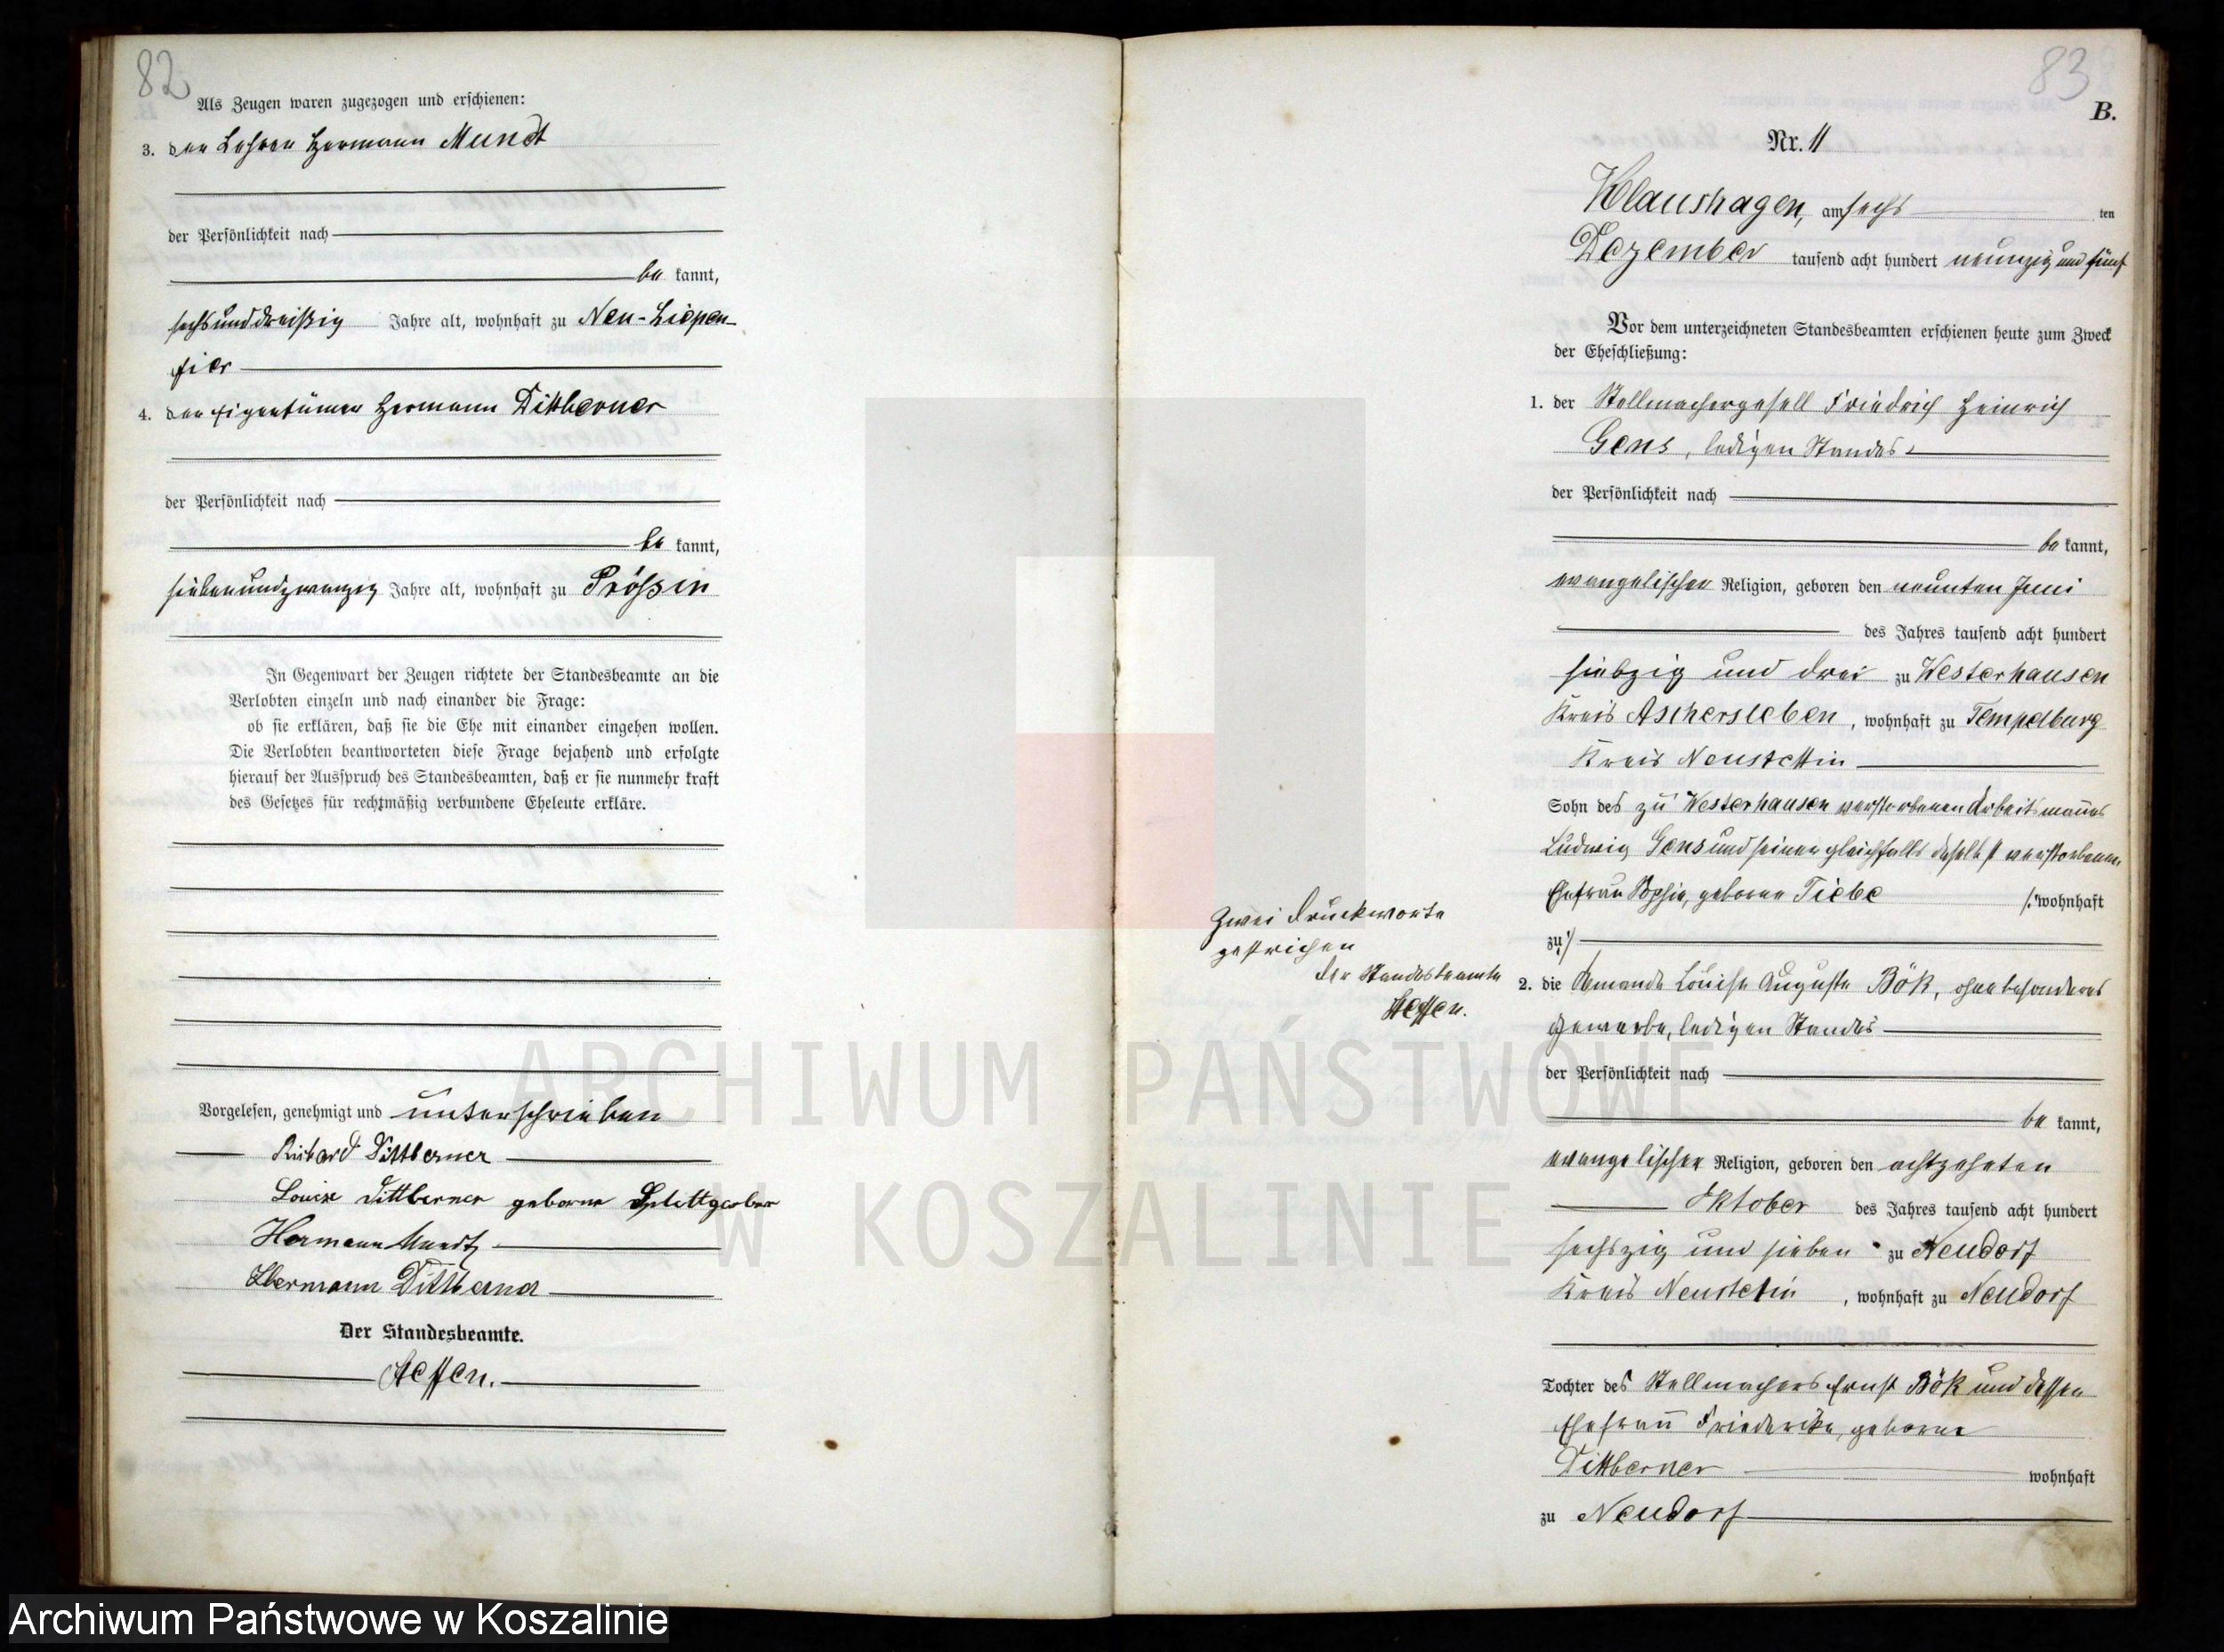 82
Als Zeugen waren zugezogen und erschienen:
3. der Lehrer Hermann Mundt
der Persönlichkeit nach
be kannt,
sechsunddreißig Jahre alt, wohnhaft zu Neu-Liepen-
fier
4. der Eigentümer Hermann Dittberner
der Persönlichkeit nach
be kannt,
siebenundzwanzig Jahre alt, wohnhaft zu Prössin
In Gegenwart der Zeugen richtete der Standesbeamte an die
Verlobten einzeln und nach einander die Frage:
ob sie erklären, daß sie die Ehe mit einander eingehen wollen.
Die Verlobten beantworteten diese Frage bejahend und erfolgte
hierauf der Ausspruch des Standesbeamten, daß er sie nunmehr kraft
des Gesetzes für rechtmäßig verbundene Eheleute erkläre.
Vorgelesen, genehmigt und unterschrieben
Richard Dittberner
Louise Dittberner geborne Splettgerber
Hermann Mundt
Hermann Dittberner
Der Standesbeamte.
Heffen.
83
B.
Nr. 11
Klaushagen, am sechs ten
Dezember tausend acht hundert neunzig und fünf
Vor dem unterzeichneten Standesbeamten erschienen heute zum Zweck
der Eheschließung:
1. der Stellmachergesell Friedrich Heinrich
Gens, ledigen Standes
der Persönlichkeit nach
be kannt,
evangelischer Religion, geboren den neunten Juni
des Jahres tausend acht hundert
siebzig und drei zu Westerhausen
Kreis Aschersleben, wohnhaft zu Tempelburg
Kreis Neustettin
Sohn des zu Westerhausen verstorbenen Arbeitsmannes
Ludwig Gens und seiner gleichfalls daselbst verstorbenen
Ehefrau Sophie, geborne Tiebe /: wohnhaft
zu :/
2. die Amanda Louise Auguste Bök, ohne besonderes
Gewerbe, ledigen Standes
der Persönlichkeit nach
be kannt,
evangelischer Religion, geboren den achtzehnten
Oktober des Jahres tausend acht hundert
sechszig und sieben zu Neudorf
Kreis Neustettin, wohnhaft zu Neudorf
Tochter des Stellmachers Ernst Bök und dessen
Ehefrau Friederike, geborne
Dittberner wohnhaft
zu Neudorf
Zwei Druckworte
gestrichen
der Standesbeamte
Heffen.
ARCHIWUM PAŃSTWOWE
W KOSZALINIE
Archiwum Państwowe w Koszalinie